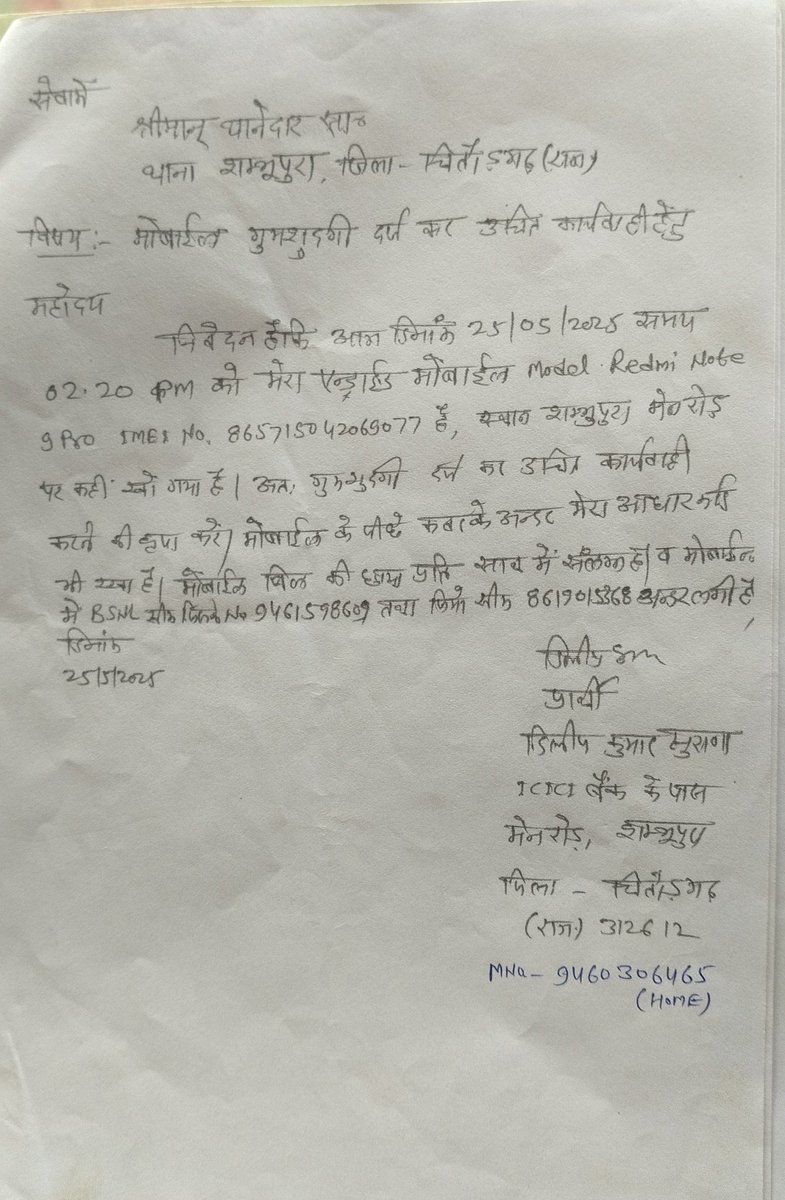 सेवामें
श्रीमान् थानेदार सा०
थाना शम्भूपुरा, जिला - चितौड़गढ़ (राज०)
विषय :- मोबाईल गुमशुदगी दर्ज कर उचित कार्यवाही हेतु
महोदय
निवेदन है कि आज दिनांक 25/05/2025 समय
02.20 PM को मेरा एन्ड्राईड मोबाईल Model Redmi Note
9 Pro IMEI No. 865715042069077 है, स्थान शम्भुपुरा मेनरोड़
पर कहीं खो गया है। अतः गुमशुदगी दर्ज कर उचित कार्यवाही
करने की कृपा करें। मोबाईल के पीछे कवर के अन्डर मेरा आधारकार्ड
भी रखा है। मोबाईल बिल की छाया प्रति साथ में संलग्न है। व मोबाईल
में BSNL सीम जिसके No 9461598609 तथा जिओ सीम 8619015368 अन्डर लगी है,
दिनांक
25/5/2025
दिलीप
प्रार्थी
दिलीप कुमार सुराणा
ICICI बैंक के पास
मेनरोड़, शम्भूपुरा
जिला - चितौड़गढ़
(राज.) 312612
MNo - 9460306465
(HOME)